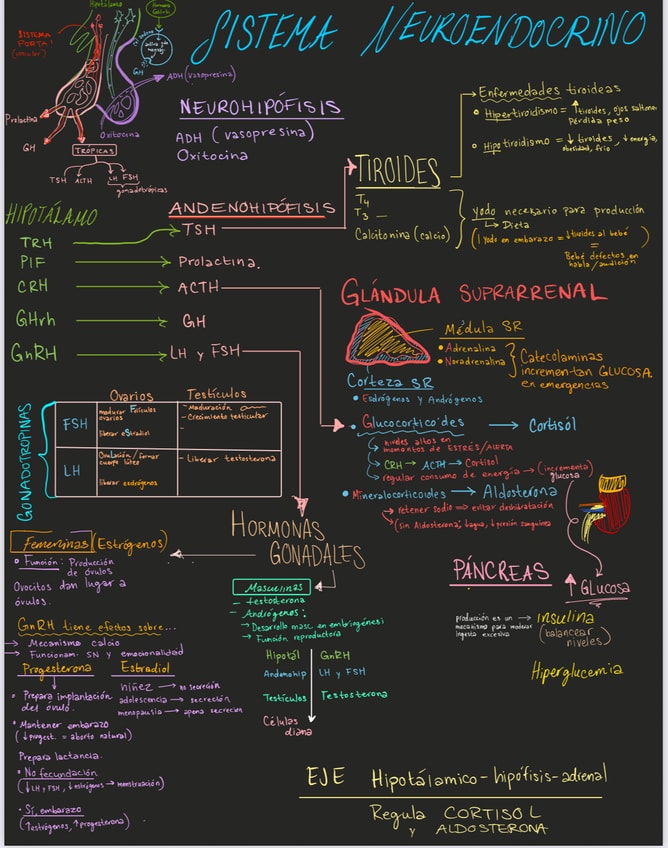 Hipotálamo
SISTEMA NEUROENDOCRINO
SISTEMA
PORTA!
(vascular)
GH
ADH (vasopresina)
Prolactina
Oxitocina
GH
TRÓPICAS
TSH ACTH LH FSH
gonadotrópicas
NEUROHIPÓFISIS
ADH (vasopresina)
Oxitocina
Enfermedades tiroideas
Hipertiroidismo = ↑ tiroides, ojos saltones
Pérdida peso
Hipotiroidismo = ↓ tiroides, ↓ energía,
obesidad, frío
TIROIDES
T4
T3
Calcitonina (calcio)
Yodo necesario para producción
↳ Dieta
(↓ Yodo en embarazo = ↓ tiroides al bebé
=
Bebé defectos en
habla/audición
HIPOTÁLAMO
ANDENOHIPÓFISIS
TRH → TSH
PIF → Prolactina.
CRH → ACTH
GHrh → GH
GnRH → LH y FSH
GLÁNDULA SUPRARRENAL
Médula SR
• Adrenalina
• Noradrenalina
Catecolaminas
incrementan GLUCOSA
en emergencias
Corteza SR
• Estrógenos y Andrógenos
• Glucocorticoides → Cortisól
niveles altos en
momentos de ESTRÉS/ALERTA
CRH → ACTH → Cortisol
regular consumo de energía → (incrementa
glucosa
• Mineralocorticoides → Aldosterona
retener sodio ⇒ evitar deshidratación
(sin Aldosterona; ↓agua, ↓presión sanguínea
GONADOTROPINAS
Ovarios Testículos
FSH
madurar folículos
ováricos
liberar estradiol
- Maduración
- Crecimiento testicular
-
LH
Ovulación/formar
cuerpo lúteo
liberar estrógenos
- Liberar testosterona
HORMONAS
GONADALES
Femeninas (Estrógenos)
• Función: Producción
de óvulos
Ovocitos dan lugar a
óvulos.
GnRH tiene efectos sobre...
→ Mecanismo calcio
→ Funcionam. SN y emocionalidad
Progesterona
• Prepara implantación
del óvulo.
• Mantener embarazo
(↓ progest. = aborto natural)
Prepara lactancia.
• No fecundación
(↓LH y FSH, ↓estrógenos → menstruación)
• Sí, embarazo
(↑estrógenos, ↑progesterona)
Estradiol
niñez → no secreción
adolescencia → secreción
menopausia → apena secreción
Masculinas
- testosterona
- Andrógenos:
→ Desarrollo masc. en embriogénesi
→ Función reproductora
Hipotál GnRH
Andenohip LH y FSH
Testículos Testosterona
Células
diana
PÁNCREAS
↑ GLucosa
producción es un
mecanismo para moderar
ingesta excesiva
→ insulina
(balancear
niveles)
Hiperglucemia
EJE Hipotálamico-hipófisis-adrenal
Regula CORTISOL
y ALDOSTERONA